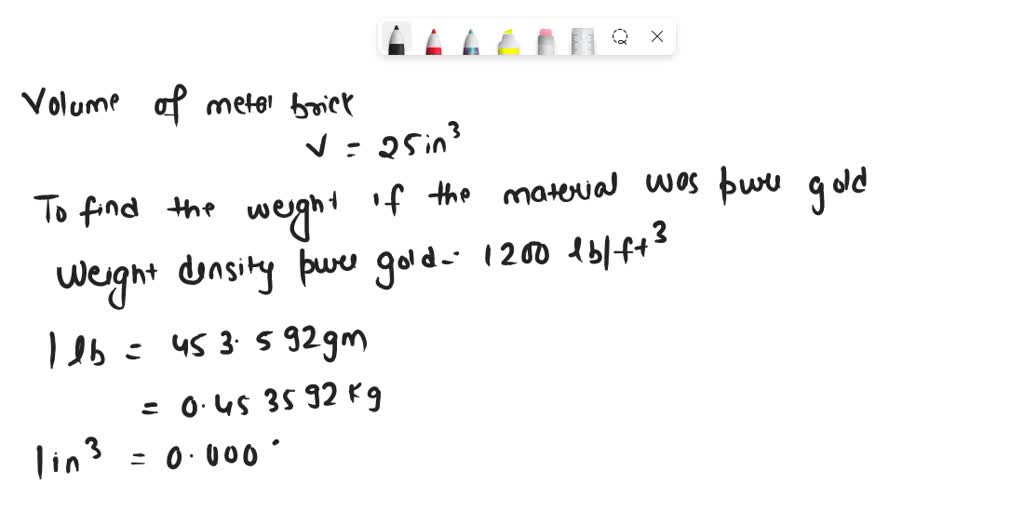 Volume of metal brick
V = 25in³
To find the weight if the material was pure gold
Weight density pure gold = 1200 lb/ft³
1 lb = 453.592gm
= 0.453592 kg
1in³ = 0.000